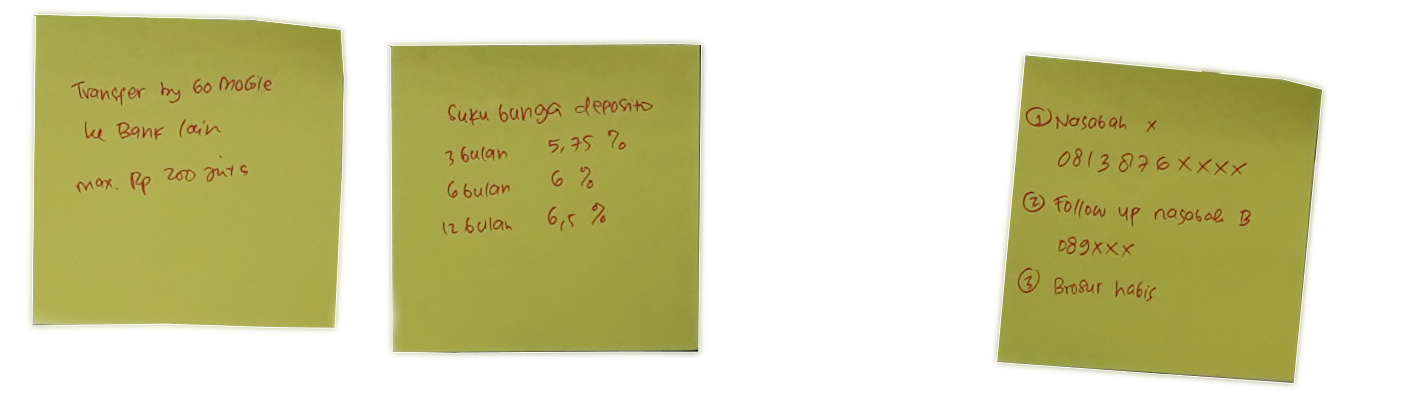 Transfer by Go Mobile
ke Bank lain
max. Rp 200 juta
Suku bunga deposito
3 bulan 5,75 %
6 bulan 6 %
12 bulan 6,5 %
① Nasabah x
0813 876 xxxx
② Follow up nasabah B
089xxx
③ Brosur habis